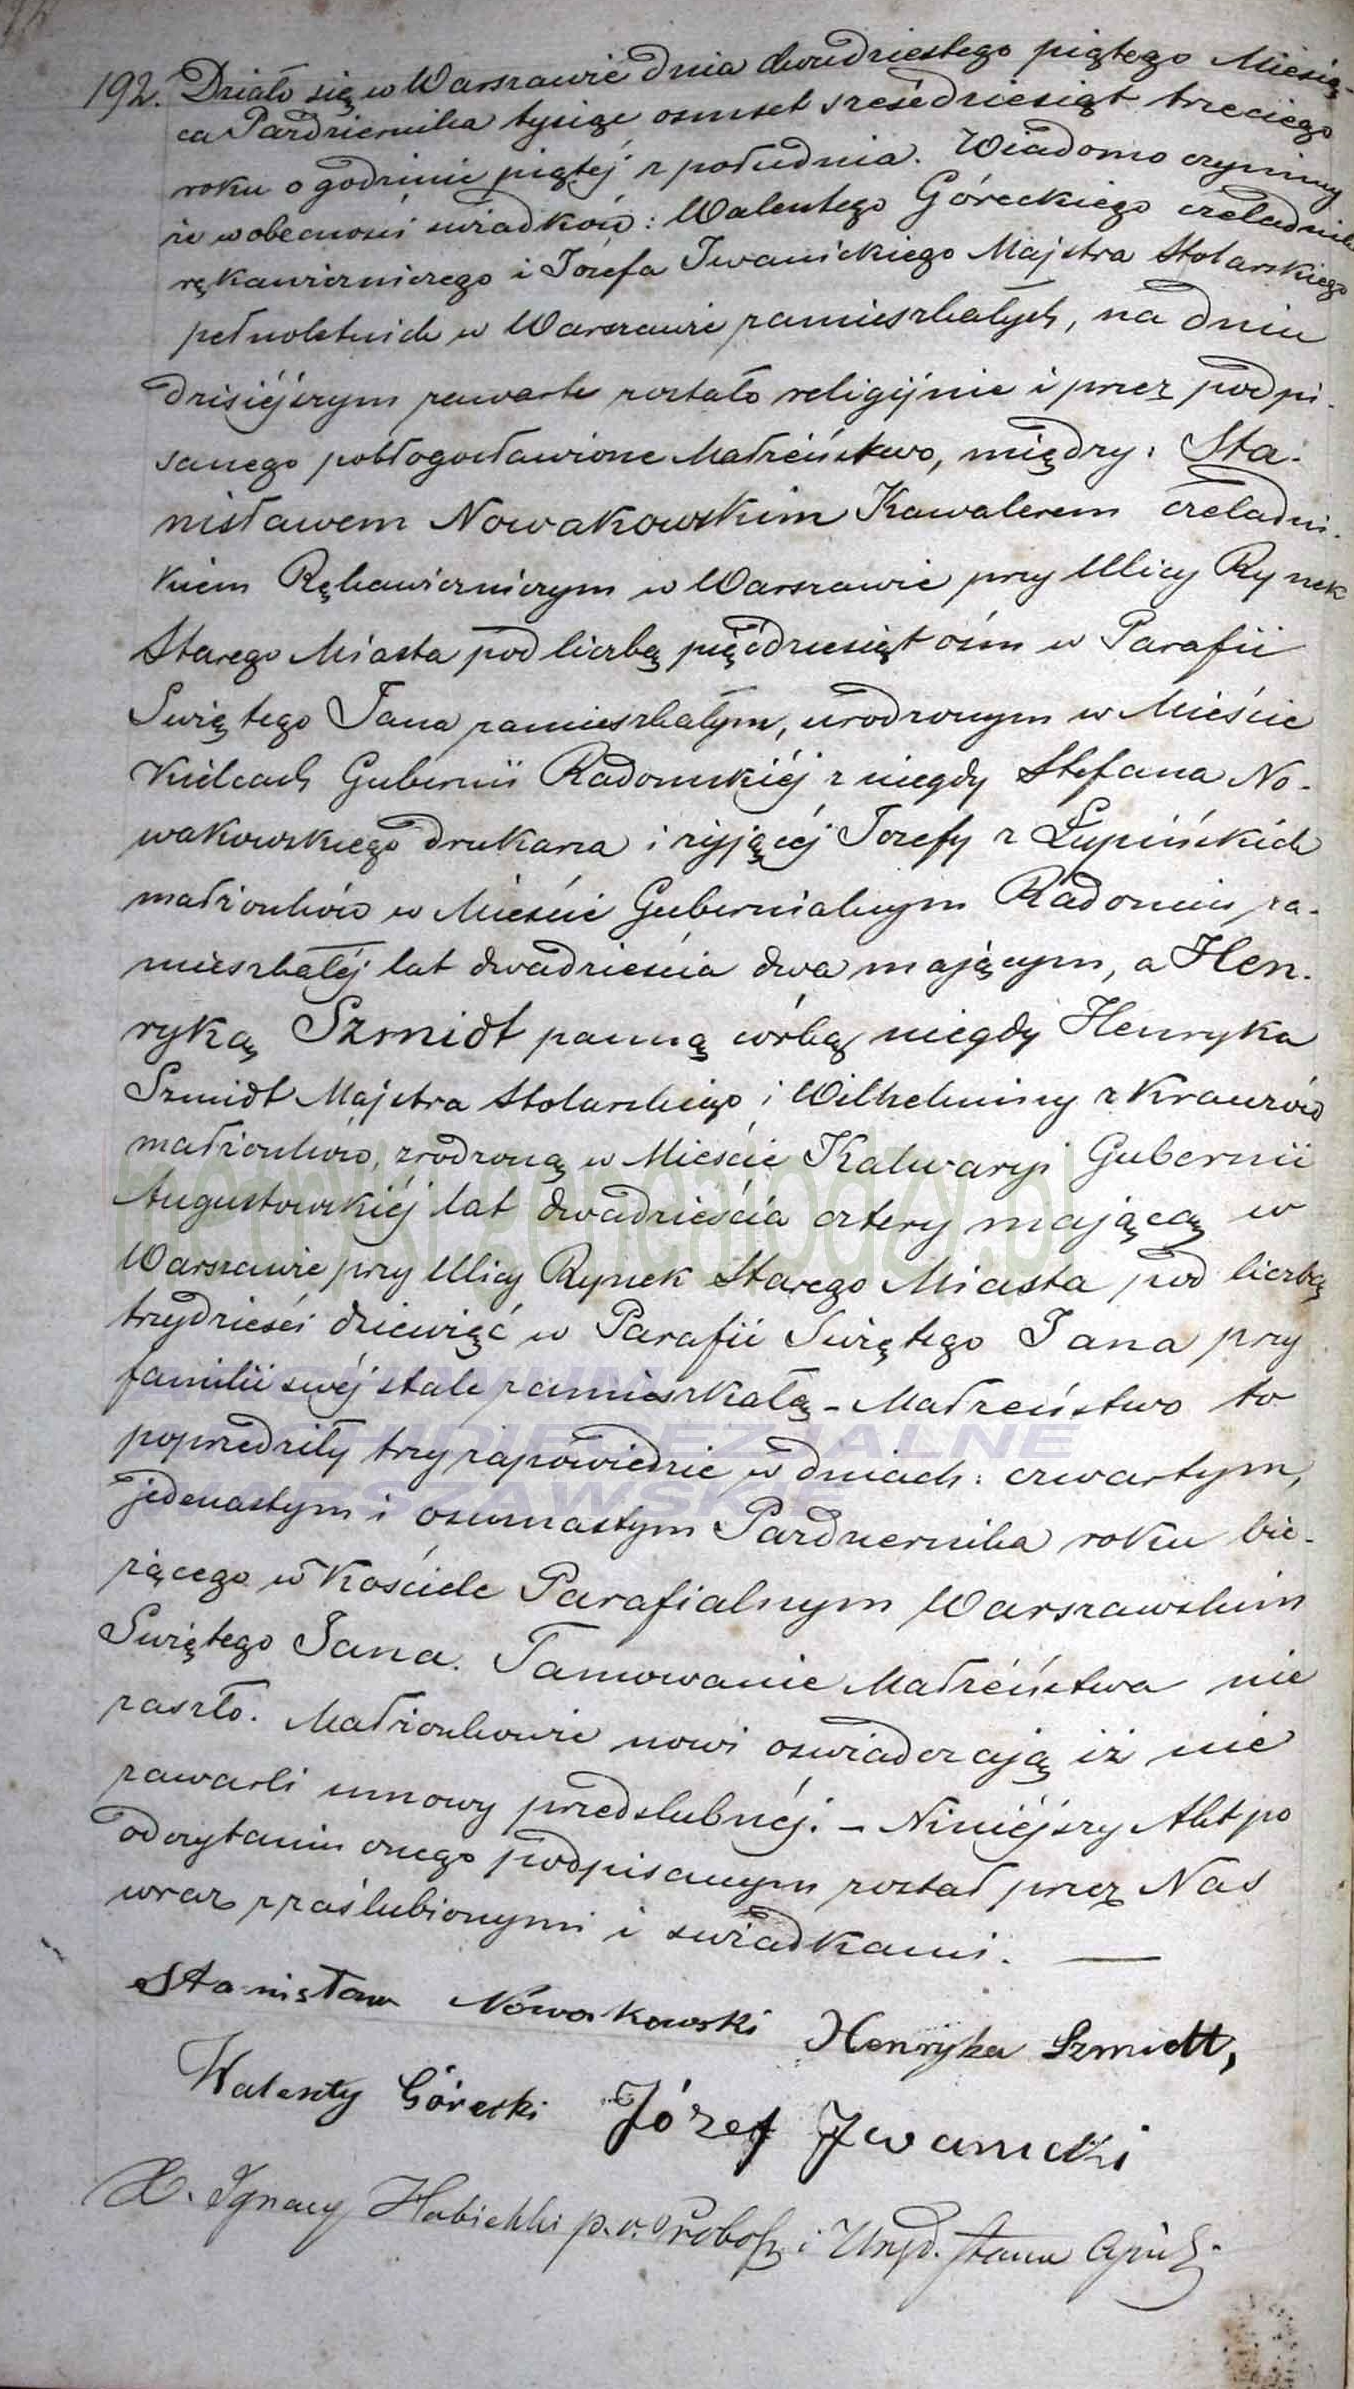 192. Działo się w Warszawie dnia dwudziestego piątego Miesią-
ca Pazdziernika tysiąc osmset sześedziesiąt trzeciego
roku o godzinie piątéj z południa. Wiadomo czyniemy
że w obecnosci swiadków: Walentego Góreckiego czeladnika
rękawiczniczego i Jozefa Iwanickiego Majstra Stolarskiego
pełnoletnich w Warszawie zamieszkałych, na dniu
dzisiéjszym zawarte zostało religijnie i przez podpi-
sanego pobłogosławione Małżeństwo, między: Sta-
nisławem Nowakowskim Kawalerem czeladni-
kiem Rękawiczniczym w Warszawie przy Ulicy Rynek
Starego Miasta pod liczbą pięćdziesiąt ośm w Parafii
Swiętego Jana zamieszkałym, urodzonym w Mieście
Kielcach Gubernii Radomskiéj z niegdy Stefana No-
wakowskiego drukarza i żyjącéj Jozefy z Łupińskich
małżonków w Mieście Gubernialnym Radomiu za-
mieszkałéj lat dwadzieścia dwa mającym, a Hen-
ryką Szmidt panną córką niegdy Henryka
Szmidt Majstra Stolarskiego i Wilhelminy z Krauzów
małżonków, zrodzoną w Mieście Kalwaryi Gubernii
Augustowskiéj lat dwadzieścia cztery mającą w
Warszawie przy Ulicy Rynek Starego Miasta pod liczbą
trzydzieści dziewięć w Parafii Swiętego Jana przy
familii swéj stale zamieszkałą – Małżeństwo to
poprzedziły trzy zapowiedzie w dniach: czwartym,
jedenastym i osmnastym Pazdziernika roku bie-
żącego w Kościele Parafialnym Warszawskim
Swiętego Jana. Tamowanie Małżeństwa nie
zaszło. Małżonkowie nowi oswiadczają iż nie
zawarli umowy przedslubnéj. – Niniéjszy Akt po
odczytaniu onego podpisanym został przez Nas
wraz z zaślubionymi i swiadkami. —
Stanisław Nowakowski Henryka Szmidt,
Walenty Górecki Józef Iwanicki
X. Ignacy p. o. Probosz. i Urzęd. Stanu Cywil.
metryki.genealodzy.pl
ARCHIWUM
ARCHIDIECEZJALNE
WARSZAWSKIE